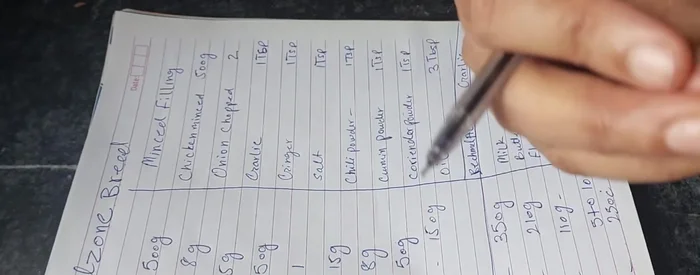 Date
lzone Bread
500g Minced Filling
8g Chicken minced 500g
5g Onion chopped 2
50g Garlic 1 TSP
1 Ginger 1 TSP
Salt 1 TSP
15g Chili powder - 1 TSP
8g Cumin powder 1 TSP
50g Coriender powder 1 TSP
- 150g 3 Tbsp
350g Milk
210g
110g -
5 to 10
250c